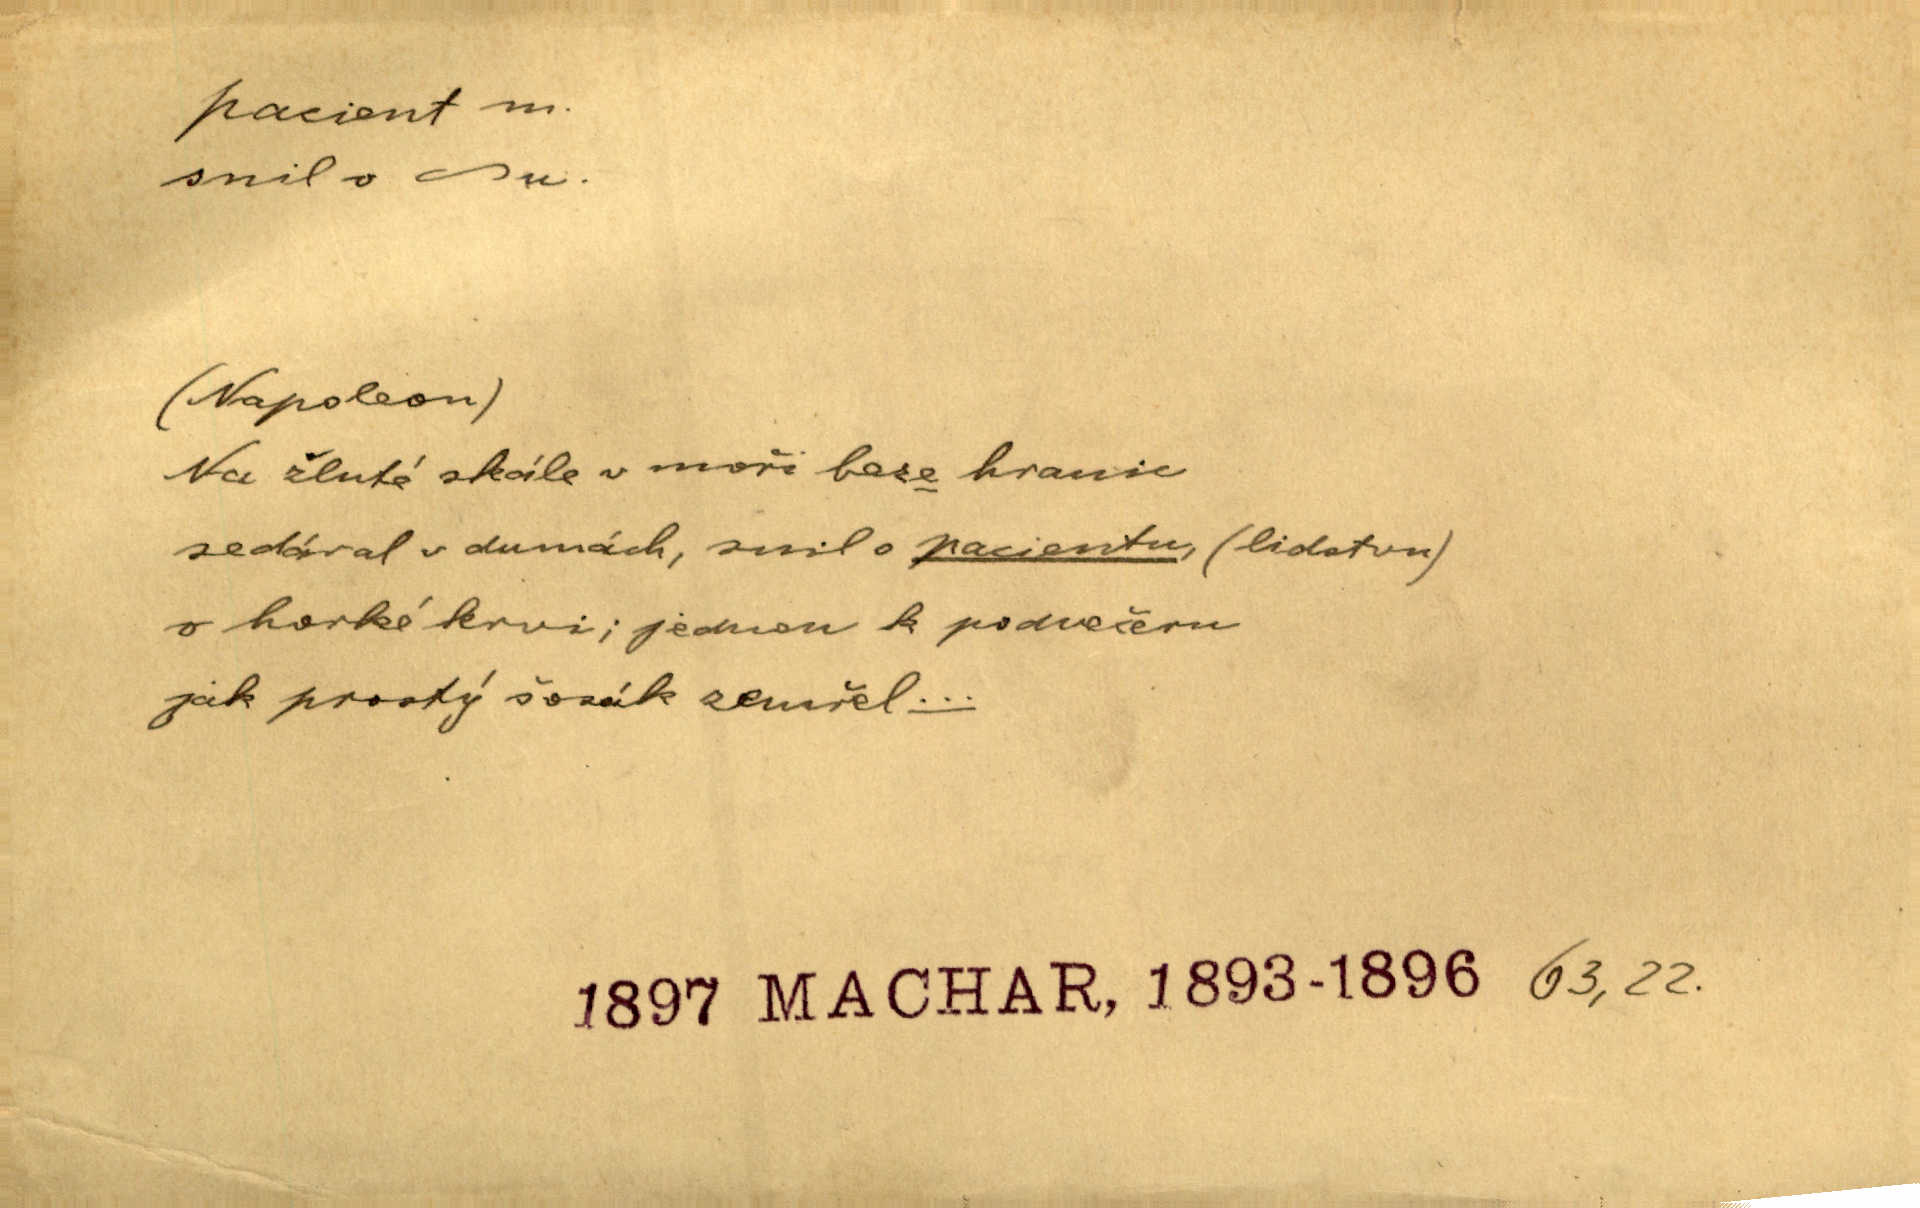 pacient m.
snil o ~u.
(Napoleon)
Na žluté skále v moři beze hranic
sedával v dumách, snil o pacientu, (lidstvu)
o horké krvi; jednou k podvečeru
jak prostý šosák zemřel...
1897 MACHAR, 1893-1896 63,22.